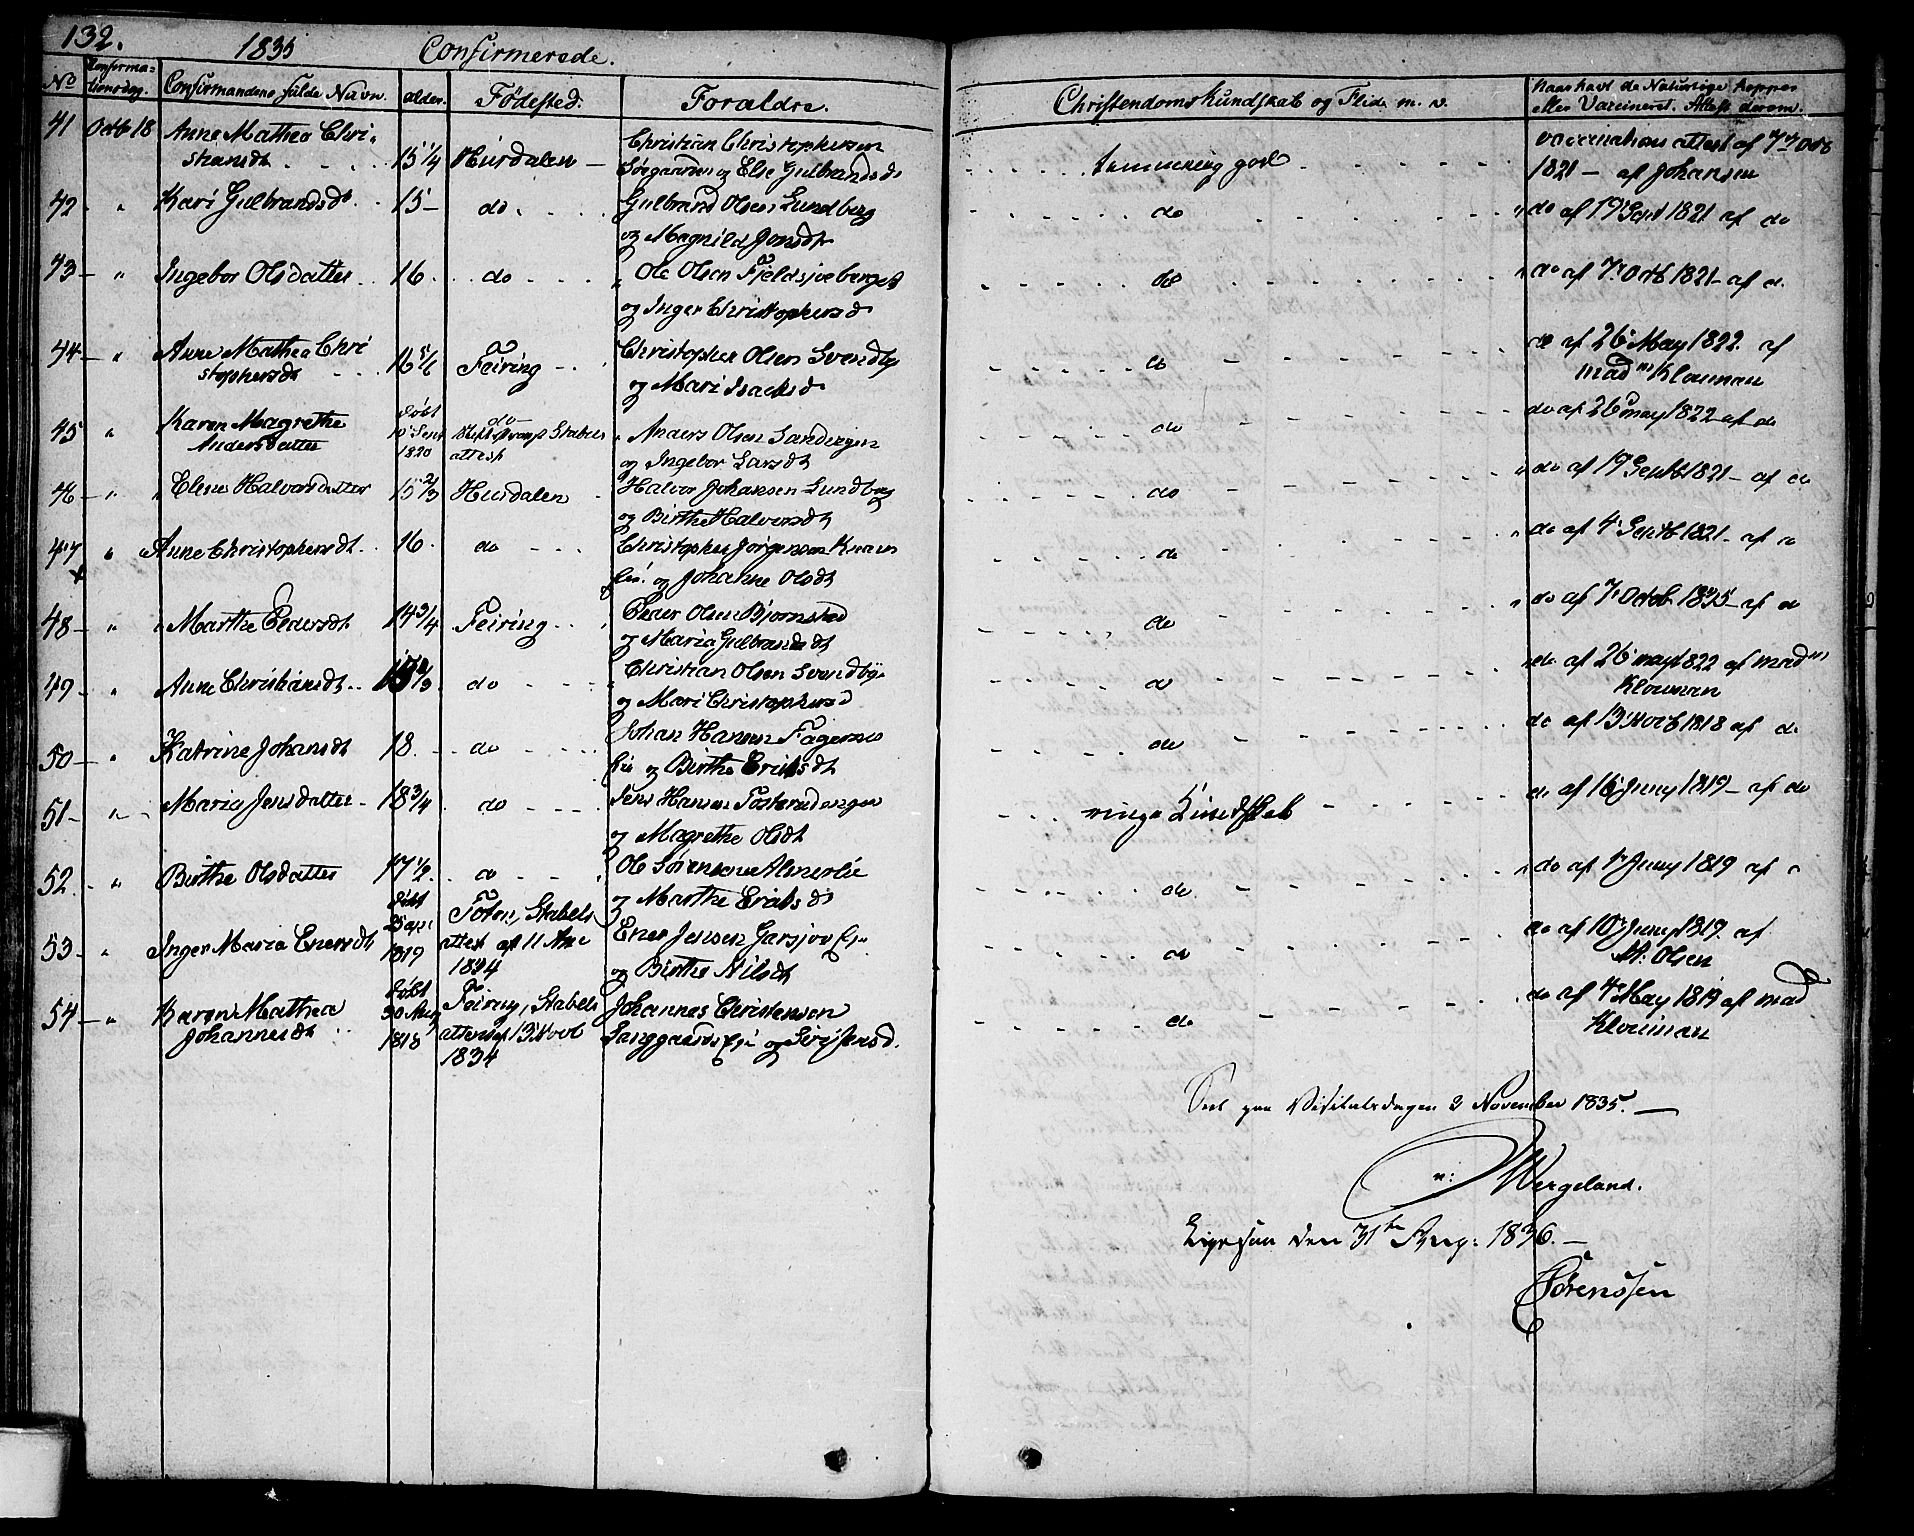 132.
1835 Confirmersde.
No Confirma-
tionsdag. Confirmandens fulde Navn. alder. Födested: Forældre. Christendoms kundskab og Flid m. v. Naar havt de Naturlige Kopper
eller Vaccineret. Attest derom.
41 Octb 18 Anne Mathea Chri- Christian Christophersen vaccinations attest af 7 Octb
stiansdt 15 1/4 Hurdalen og Else Gulbrandsd temmelig god 1821 - af Johansen
42 " Kari Gulbrandsdr 15 - do Gulbrand Olsen Lundberg do do af 19 Sept 1821 af do
og Magnild Jonsdtr
43 - " Ingebor Olsdatter 16 do Ole Olsen Fjeldsjøeberget do do af 7 Octb 1821 - af d.
og Inger Christophersd
44 - " Anne Mathea Chri Christopher Olsen Svendby do af 26 May 1822. af
stophersdt 16 5/6 Feiring og Mari Isacksd do Mad Klouman
45 " Karen Magrethe döbt do Anders Olsen do do af 26 may 1822 af do
Andersdatter 1820 Stabels attest og Ingebor Larsdt
46 - " Elene Halvorsdatter 15 2/3 Hurdalen Halvor Johansen Lundberg do do af 19 Septb 1821 - af do
og Birthe Halvorsdt
47 " Anne Christophersdt 16 do Christopher Jørgensen do do af 4 Septb 1821 - af
og Johanne Olsdt
48 - " Marthe Pedersdt 14 3/4 Feiring Peder Olsen Bjørnstad do do af 7 Octob 1835 - af do
og Maria Gulbrandsdt
49 - " Anne Christiansdt do Christian Olsen Svendbye do af 26 may 1822 af mad
og Mari Christophersd Klouman
50 - " Katrine Johansdt 18. do Johan Hansen Fagernes do do af 13 Novb 1818 af do
eie og Birthe Eriksdt
51 - " Maria Jensdatter 18 3/4 do Jens Hansen ringe Kundskab do af 16 Juny 1819 - af do
og Magrethe Olsdt
52 " Birthe Olsdatter 17 1/2. do Ole Sörensen Almerlie do do af 1 Juny 1819 af
og Marthe Eriksdt
53 - " Inger Maria Enersdt döbt 1819 Toten, Stabels Ener Jensen Garsjøe do af 10 Juny 1819. af
attest af 11 1834 og Birthe Nilsdt M. Olsen
54 - " Karen Mathea döbt Feiring, Stabels Johannes Christensen do af 4 May 1819 af mad
Johannesdt 30 1818 attest af 13 Novb Langgaardseie og Siri do Klouman
1834
Seet paa Visitatsdagen 2 November 1835. -
N: Wergeland.
Ligesaa den 31te Aug: 1836. -
Sörenssen